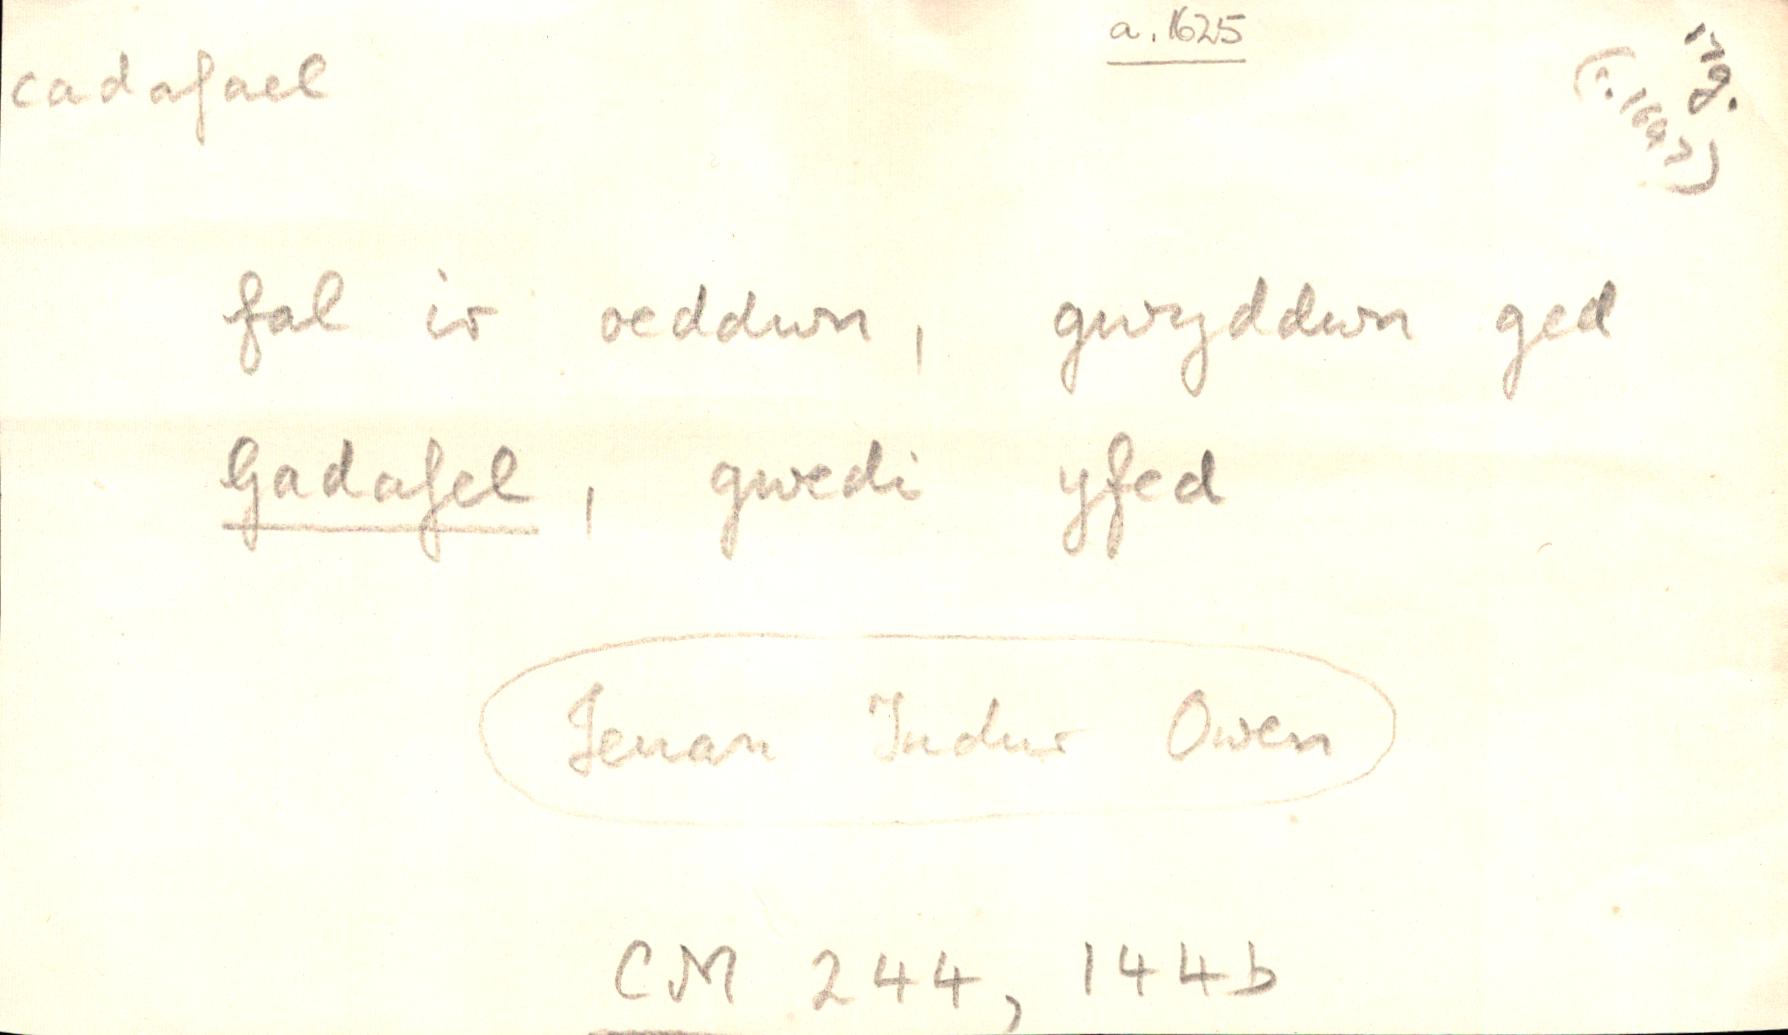 a. 1625
cadafael
17g.
(c. 1697)
fal ir oeddwn, gwyddwn ged
Gadafel, gwedi yfed
Ieuan Tudur Owen
CM 244, 144b